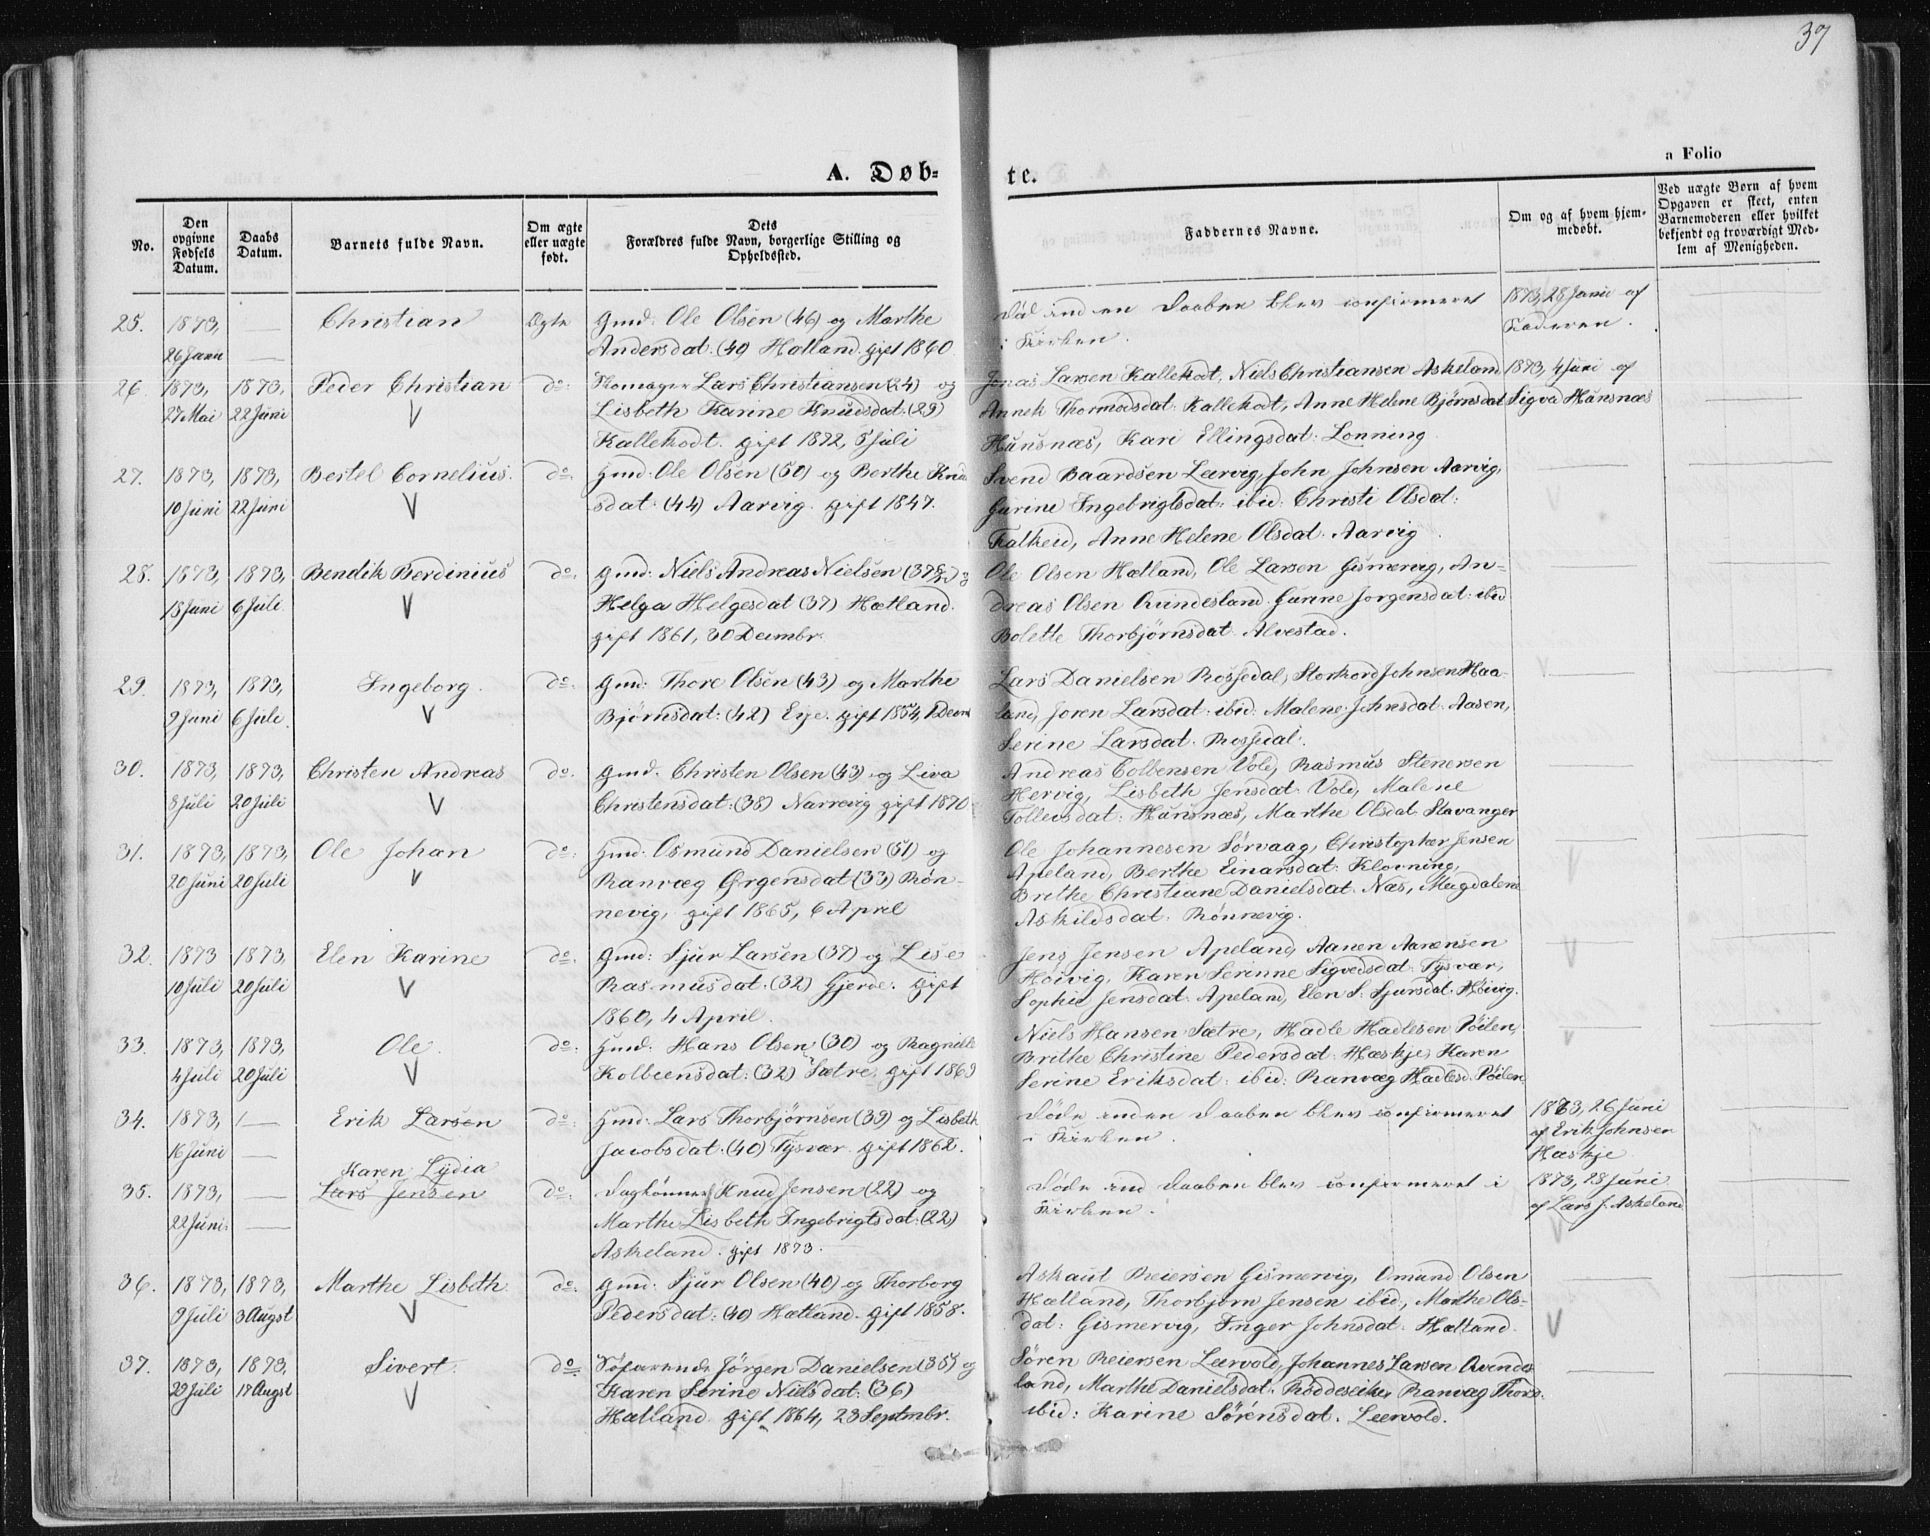 37
a Folio
A. Døb-
te.
No.
Den opgivne Fødsels Datum.
Daabs Datum.
Barnets fulde Navn.
Om ægte eller uægte født.
Dets
Forældres fulde Navn, borgerlige Stilling og Opholdssted.
Faddernes Navne.
Om og af hvem hjemmedøbt.
Ved uægte Børn af hvem Opgaven er skeet, enten Barnemoderen eller hvilket bekjendt og troværdigt Medlem af Menigheden.
25. 1873, Christian Ægte Gmd: Ole Olsen (46) og Marthe
26 Juni Andersdat: (40) Hætland. gift 1860.
Død inden Daaben blev confirmeret 1873, 28 Juni af
i Kirken. Faderen.
26. 1873, 1873, Peder Christian do: Lars Christiansen (24) og
27 Mai 22 Juni Lisbeth Karine Knudsdat: (29)
Kallekodt. gift 1872, 5 Juli
Jonas Larsen Kallekodt, Niels Christiansen Askeland 1873, 4 Juni af
Thormodsdat: Kallekodt, Anne Helene Bjørnsdat Sigva Hunsnæs
Hunsnæs, Kari Ellingsdat: Lonning.
27. 1873, 1873, Bertel Cornelius. do: Gmd: Ole Olsen (50) og Berthe Knud
10 Juni 22 Juni sdat: (44) Aarvig. gift 1847.
Svend Baardsen Leervig, John Johnsen Aarvig,
Gurine Ingebrigtsdat: ibid: Christi Olsdat:
Falkeid, Anne Helene Olsdat: Aarvig.
28. 1873, 1873, Bendik Berdinius do: Gmd: Niels Andreas Nielsen
18 Juni 6 Juli. Helga Helgesdat (37) Hætland.
gift 1861, 30 Decmbr.
Ole Olsen Hætland, Ole Larsen Gismervig, An-
dreas Olsen Qvindesland. Gunne Jorgensdat: ibid
Bolette Thorbjørnsdat: Alvestad.
29. 1873, 1873, Ingeborg. do: Gmd: Thore Olsen (43) og Marthe
9 Juni 6 Juli Bjørnsdat: (42) Erje. gift 1854,
Lars Danielsen Rossedal, Storkord Johnsen Haa-
land, Joren Larsdat: ibid: Malene Johnsdat: Aasen,
Serine Larsdat: Rossedal.
30. 1873, 1873, Christen Andreas do: Gmd: Christen Olsen (43) og Liva
8 Juli 20 Juli Christensdat: (38) Narrevig gift 1870
Andreas Colbensen Vold, Rasmus Stenersen
Hervig, Lisbeth Jensdat: Vold, Malene
Tollevsdat: Hunsnæs, Marthe Olsdat: Stavanger
31. 1873, 1873, Ole Johan do: Gmd: Osmund Danielsen (51) og
20 Juni 20 Juli Ranvæg Ørgensdat (33) Røn-
nevig, gift 1865, 6 April
Ole Johannesen Sørvaag, Christopher Jensen
Apeland, Berthe Einarsdat: Klovning,
Brethe Christiane Danielsdat: Næs, Magdalene
Askildsdat: Rønnevig.
32. 1873 1873, Elen Karine do: Gmd: Sjur Larsen (37) og Lise
10 Juli 20 Juli Rasmusdat: (32) Gjerde. gift
1860, 4 April.
Jens Jensen Apeland, Aanen Aanensen
Høivig, Karen Serinne Sigvedsdat: Tysvær,
Sophie Jensdat: Apeland, Elen S: Sjursdat: Høivig.
33. 1873, 1873, Ole. do: Gmd: Hans Olsen (30) og Ragnille
4 Juli 20 Juli Kolbeensdat: (32) Sætre. gift 1869
Niels Hansen Sætre, Hadle Hadlesen Pøilen,
Brithe Christine Pedersdat: Hæskje, Karen
Serine Eriksdat: ibid: Ranvæg Hadlesd: Pøilen
34. 1873, Erik Larsen do: Gmd: Lars Thorbjørnsen (39) og Lisbeth
16 Juni Jacobsdat: (40) Tysvær. gift 1862.
Døde inden Daaben blev confirmeret 1873, 26 Juni
i Kirken. af Erik Johnsen
Hæskje
Karen Lydia
35. 1873, Lars Jensen do: Knud Jensen (22) og
22 Juni. Marthe Lisbeth Ingebrigtsdat: (22)
Askeland. gift 1873.
Døde ind Daaben blev confirmeret i 1873, 28 Juni
Kirken. af Lars J. Askeland
36. 1873, 1873, Marthe Lisbeth do: Gmd: Sjur Olsen (40) og Thorborg
9 Juli 3 Augst Pedersdat: (40) Hætland. gift 1858.
Askaut Reiersen Gismervig, Omund Olsen
Hætland, Thorbjørn Jensen ibid, Marthe Ols-
dat: Gismervig, Inger Johnsdat: Hætland.
37. 1873, 1873, Sivert. do: Søfarende Jørgen Danielsen (35) og
29 Juli 17 Augst Karen Serine Nielsdat: (36)
Hætland. gift 1864, 23 Septmbr.
Søren Reiersen Leervold, Johannes Larsen Qvindes
land, Marthe Danielsdat: Røddeseike, Ranvæg Thors.
ibid: Karine Sørensdat. Leervold.